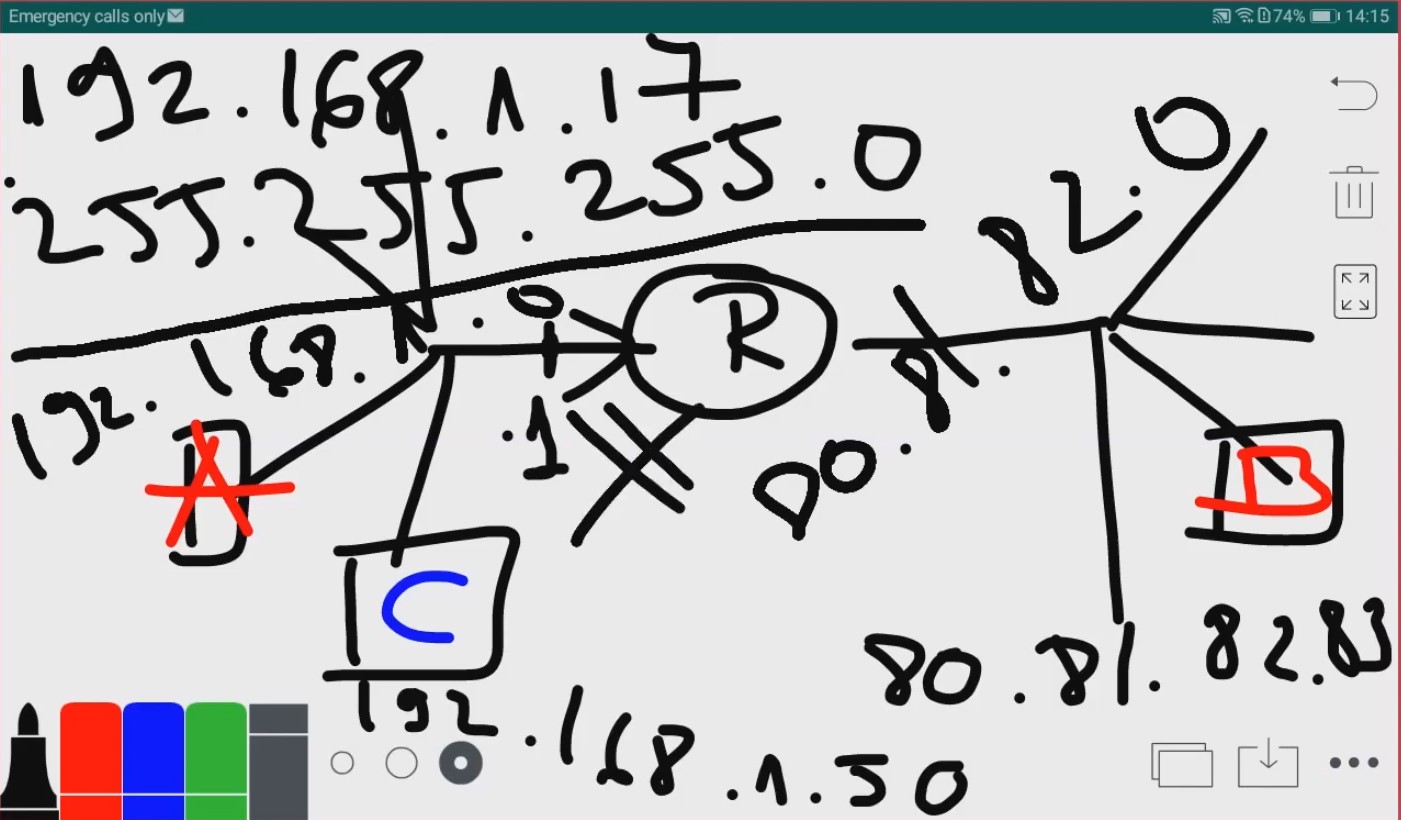 Emergency calls only 74% 14:15
192.168.1.17
255.255.255.0
192.168.1.0
R
.1
80.81.82.0
A
B
C
80.81.82.83
192.168.1.50